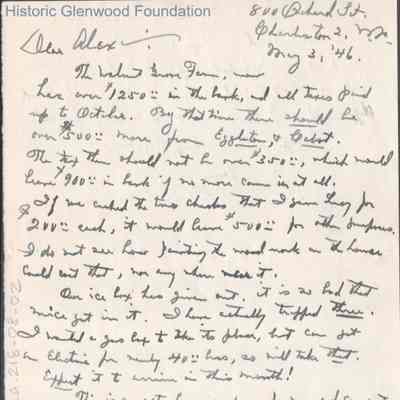 Historic Glenwood Foundation
800 Orchard St.
Charleston 2, W.Va.
May 3, '46.
Dear Alex:
The Walnut Grove Farm, now
has over $1250.00 in the bank, and all taxes paid
up to October. By that time there should be
over $500.00 more from Eggleton, & Pabst.
The tax then should not be over $350.00, which would
leave $900.00 in bank if no more came in at all.
If we cashed the two checks that I gave Lucy for
$200.00 each, it would leave $500.00 for other purposes.
I do not see how painting the wood work on the house
could cost that, nor any where near it.
Our ice box has given out. it is so bad that
mice get in it. I have actually trapped three.
I wanted a gas box to take its place, but can get
an Electric for nearly 40.00 less, so will take that.
Expect it to arrive in this month!